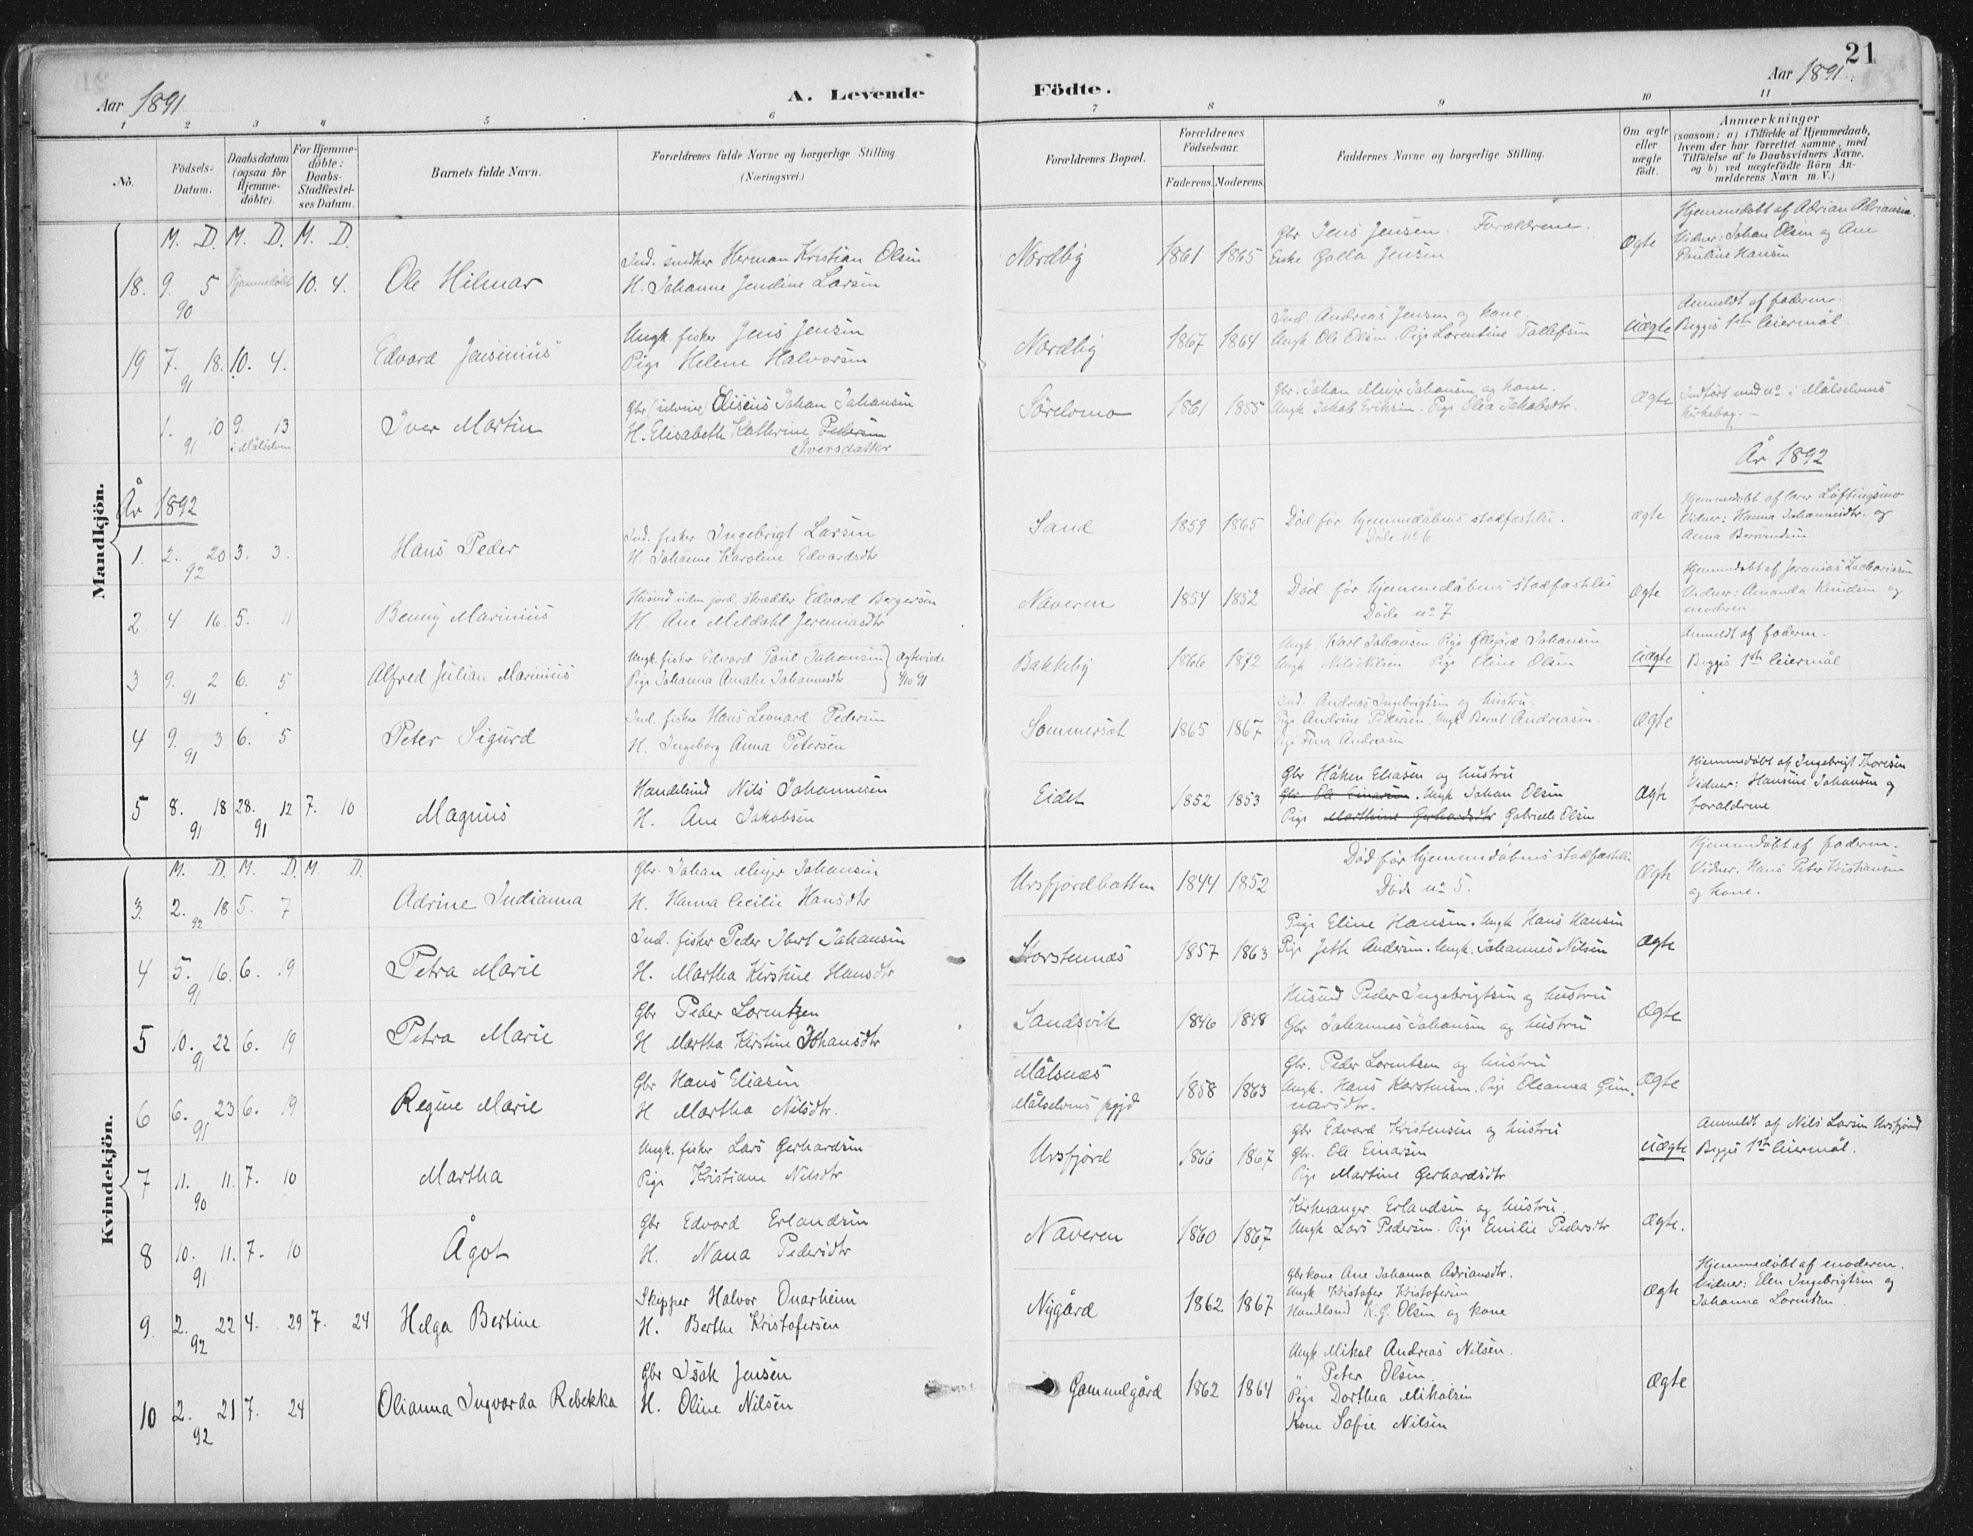 21
Aar 1891
A. Levende Födte.
Aar 1891.
1 2 3 4 5 6 7 8 9 10 11
No.
Födsels-Datum.
Daabsdatum (ogsaa för Hjemme-döbte).
For Hjemme-döbte: Daabs-Stadfæstel-ses Datum.
Barnets fulde Navn.
Forældrenes fulde Navne og borgerlige Stilling.
(Næringsvei.)
Forældrenes Bopæl.
Forældrenes Födselsaar.
Faderens. Moderens.
Faddernes Navne og borgerlige Stilling.
Om ægte eller uægte födt.
Anmærkninger
(saasom: a) i Tilfælde af Hjemmedaab, hvem der har forrettet samme, med Tilföielse af to Daabsvidners Navne, og b) ved uægtefödte Börn Anmelderens Navn m. V.)
Mandkjön.
M. D. M. D. M. D.
18. 9. 5 Hjemmedöbt 10. 4.
90
Ole Hilmar
Ind. Herman Kristian Olsen
H. Johanne Jendine Larsen
Nordby 1861 1865
Gbr Jens Jensen. Forældrene.
Enke Golla Jensen
Ægte
Hjemmedöbt af Adrian Adriansen.
Vidner: Johan Olsen og Ane
Pauline Hansen
19 7. 18. 10. 4.
91
Edvard Jensinius
Ungk. fisker Jens Jensen
Pige Helene Halvorsen
Nordby 1867 1864
Ind. Andreas Jensen og kone.
Ungk Ole Olsen. Pige Lorentine Tollefsen
Uægte
Anmeldt af faderen.
Begges 1ste leiermål.
1. 10 9. 13
91 i Målselven
Iver Martin
Gbr (selveier) Eliseus Johan Johansen
H. Elisabeth Kathrine Pedersen
Iversdatter
Sörelvmo 1861 1855
Gbr. Johan Meyer Johansen og kone.
Ungk Jakob Eriksen. Pige Olea Jakobsdtr.
Ægte
Indfört med no i Målselvens
Kirkebog. —
År 1892
År 1892
1. 2. 20 3. 3.
92
Hans Peder
Ind. fisker Ingebrigt Larsen
H. Johanne Karoline Edvardsdtr
Sand 1859 1865
Död för hjemmedåbens stadfæstelse.
Döde no 6.
Ægte
Hjemmedöbt af lærer Löftingsmo
Vidner: Hanna Johannesdtr. og
Anna
2 4 16. 5. 11
Benny Marinius
Husmd uden jord, skrædder Edvard Bergersen
H. Ane Meldahl Jeremiasdtr
Naveren 1854 1852
Död för hjemmedåbens stadfæstelse
Döde no 7
Ægte
Hjemmedöbt af Jeremias Zachariasen
Vidner: Amanda Knudsen og
moderen.
3 9. 2 6. 5
91
Alfred Julian Marinius
Ungk. fisker Edvard Paul Johansen } Ægteviede
Pige Johanna Amalie Johannesdtr 4/10 91
Bakkeby 1866 1872
Ungk. Karl Johansen Pige Ollegård Johansen
Ungk Nils Nilsen Pige Eline Olsen
Uægte
Anmeldt af faderen.
Begges 1ste leiermål
4 9. 3 6. 5
91
Peter Sigurd
Ind. fisker Hans Leonard Pedersen
H. Ingeborg Anna Petersen
Sommerset 1865 1867
Ind. Andreas Ingebrigtsen og hustru.
Pige Andrine Pedersen. Ungk Bernt Andreasen.
Pige Fina Andreasen
Ægte
5 8. 18 28. 12 7. 10
91 91
Magnus
Handelsmd Nils Johannesen
H. Ane Jakobsen
Eidet 1852 1853
Gbr Håken Eliasen og hustru
Gbr. Ole Einarsen. Ungk Johan Olsen
Pige Marthine Gerhardsdtr Gabrielle Olsen
Ægte
Hjemmedöbt af Ingebrigt Thoresen
Vidner: Hansine Johansen og
forældrene
Kvindekjön.
M. D. M. D. M. D.
3. 2. 18 5. 7
92
Adrine Indianna
Gbr. Johan Meyer Johansen
H. Hanna Cecilie Hansdtr
Ursfjordbotten 1844 1852
Död för hjemmedåbens stadfæstelse
Döde no 5.
Ægte
Hjemmedöbt af faderen.
Vidner: Hans Peter Kristiansen
og kone.
4 5. 16. 6. 19
91
Petra Marie
Ind. fisker Peder Ibert Johansen
H. Martha Kirstine Hansdtr
Storstennæs 1857 1863
Pige Eline Hansen. Ungk Hans Hansen
Pige Jette Andersen. Ungk. Johannes Nilsen
Ægte
5 10. 22 6. 19
91
Petra Marie
Gbr Peder Lorentzen
H Martha Kirstine Johansdtr
Sandsvik 1846 1848
Husmd Peder Ingebrigtsen og hustru
Gbr Johannes Johansen og hustru
Ægte
6 6. 23 6. 19
91
Regine Marie
Gbr Hans Eliasen
H Martha Nilsdtr.
Målsnæs
Målselvens pgjd 1858 1863
Gbr. Peder Lorentsen og hustru
Ungk. Hans Karstensen. Pige Oleanna Gun-
narsdtr.
Ægte
7 11. 11. 7. 10
90
Martha
Ungk. fisker Lars Gerhardsen
Pige Kristiane Nilsdtr
Ursfjord 1866 1867
Gbr Edvard Kristensen og hustru
Gbr. Ole Einarsen
Pige Martine Gerhardsdtr
Uægte
Anmeldt af Nils Larsen Ursfjord
Begges 1ste leiermål.
8 10. 11. 7. 10
91
Ågot
Gbr Edvard Erlandsen
H. Nana Pedersdtr
Naveren 1860 1867
Kirkesanger Erlandsen og hustru.
Ungk Lars Pedersen. Pige Emilie Pedersdtr
Ægte.
9. 2. 22 4. 29 7. 24
92
Helga Bertine
Skipper Halvor Onarheim
H. Berthe Kristofersen
Nygård 1862 1867
Gbrkone Ane Johanna Adriansdtr.
Ungk Kristofer Kristofersen
Handlsmd K. G. Olsen og kone
Ægte
Hjemmedöbt af moderen.
Vidner: Elen Ingebrigtsen og
Johanna Lorentsen
10 2. 21 7. 24
92
Olianna Ingvarda Rebekka
Gbr Isak Jensen
H. Oline Nilsen
Gammelgård 1862 1864
Ungk Mikal Andreas Nilsen.
" Peter Olsen.
Pige Dorthea Mikalsen
Kone Sofie Nilsen
Ægte